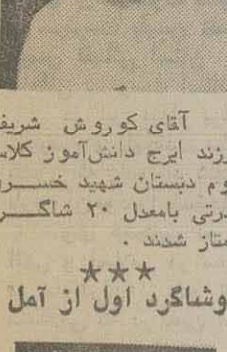 آقای کوروش شریف
رزند ایرج دانش‌آموز کلاس
وم دبستان شهید خسرو
درتی بامعدل ۲۰ شاگرد
متاز شدند .
★★★
وشاگرد اول از آمل